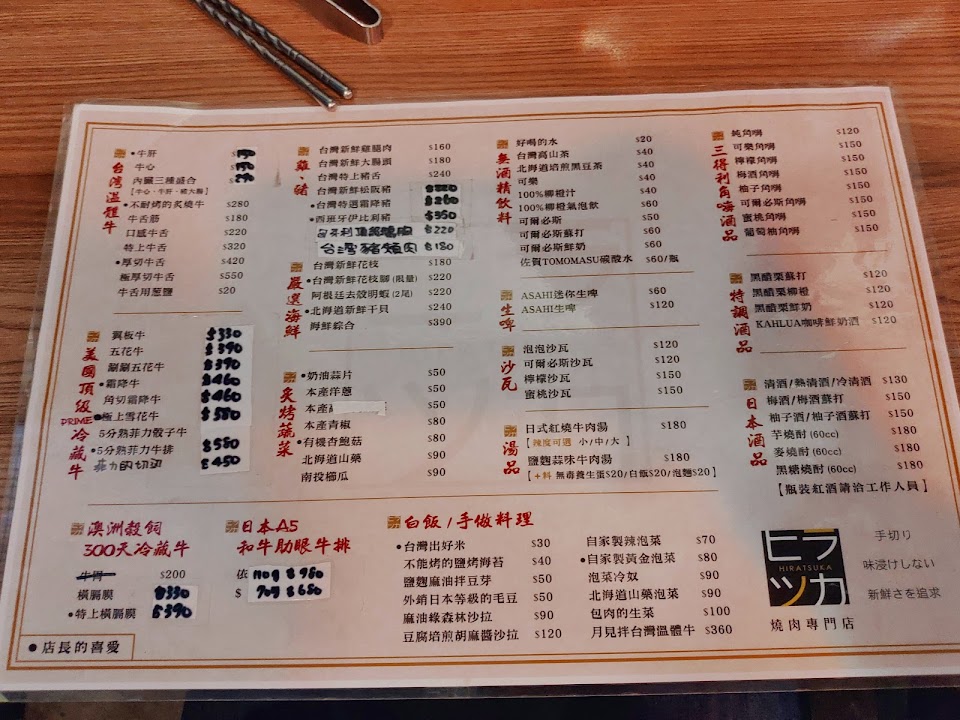 台灣溫體牛
•牛肝 $150
牛心 $150
內臟三種盛合
【牛心、牛肝、雞大腸】
•不耐烤的炙燒牛 $280
牛舌筋 $180
口感牛舌 $220
特上牛舌 $320
•厚切牛舌 $420
極厚切牛舌 $550
牛舌用蔥鹽 $20
美國頂級PRIME冷藏牛
翼板牛 $330
五花牛 $390
涮涮五花牛 $390
•霜降牛 $460
角切霜降牛 $460
•極上雪花牛 $580
5分熟菲力骰子牛 $580
•5分熟菲力牛排
菲力的切邊 $450
雞、豬
台灣新鮮雞腿肉 $160
台灣新鮮大腸頭 $180
台灣特上豬舌 $240
台灣新鮮松阪豬 $220
•台灣特選霜降豬 $260
•西班牙伊比利豬 $350
匈牙利頂級鴨胸 $220
台灣豬頰肉 $180
嚴選海鮮
台灣新鮮花枝 $180
•台灣新鮮花枝腳 (限量) $220
阿根廷去殼明蝦 (2尾) $220
•北海道新鮮干貝 $240
海鮮綜合 $390
炙烤蔬菜
•奶油蒜片 $50
本產洋蔥 $50
本產 $50
本產青椒 $80
•有機杏鮑菇 $80
北海道山藥 $90
南投櫛瓜 $90
無酒精飲料
好喝的水 $20
台灣高山茶 $40
北海道焙煎黑豆茶 $40
可樂 $40
100%柳橙汁 $40
100%柳橙氣泡飲 $60
可爾必斯 $50
可爾必斯蘇打 $60
可爾必斯鮮奶 $60
佐賀TOMOMASU碳酸水 $60/瓶
生啤
ASAHI迷你生啤 $60
ASAHI生啤 $120
沙瓦
泡泡沙瓦 $120
可爾必斯沙瓦 $120
檸檬沙瓦 $150
蜜桃沙瓦 $150
湯品
日式紅燒牛肉湯 $180
【辣度可選 小/中/大】
鹽麴蒜味牛肉湯 $180
【+料 無毒養生蛋$20/白飯$20/泡麵$20】
三得利角嗨酒品
純角嗨 $120
可樂角嗨 $150
檸檬角嗨 $150
梅酒角嗨 $150
柚子角嗨 $150
可爾必斯角嗨 $150
蜜桃角嗨 $150
葡萄柚角嗨 $150
特調酒品
黑醋栗蘇打 $120
黑醋栗柳橙 $120
黑醋栗鮮奶 $120
KAHLUA咖啡鮮奶酒 $120
日本酒品
清酒/熱清酒/冷清酒 $130
梅酒/梅酒蘇打 $150
柚子酒/柚子酒蘇打 $150
芋燒酎 (60cc) $180
麥燒酎 (60cc) $180
黑糖燒酎 (60cc) $180
【瓶裝紅酒請洽工作人員】
澳洲穀飼
300天冷藏牛
$200
橫膈膜 $330
•特上橫膈膜 $390
日本A5
和牛肋眼牛排
依 140g $980
$ 70g $650
白飯/手做料理
•台灣出好米 $30
不能烤的鹽烤海苔 $40
鹽麴麻油拌豆芽 $50
外銷日本等級的毛豆 $50
麻油綠森林沙拉 $90
豆腐焙煎胡麻醬沙拉 $120
自家製辣泡菜 $70
•自家製黃金泡菜 $80
泡菜冷奴 $90
北海道山藥泡菜 $90
包肉的生菜 $100
月見拌台灣溫體牛 $360
•店長的喜愛
ヒラ
HIRATSUKA
ツカ
燒肉專門店
手切り
味浸けしない
新鮮さを追求